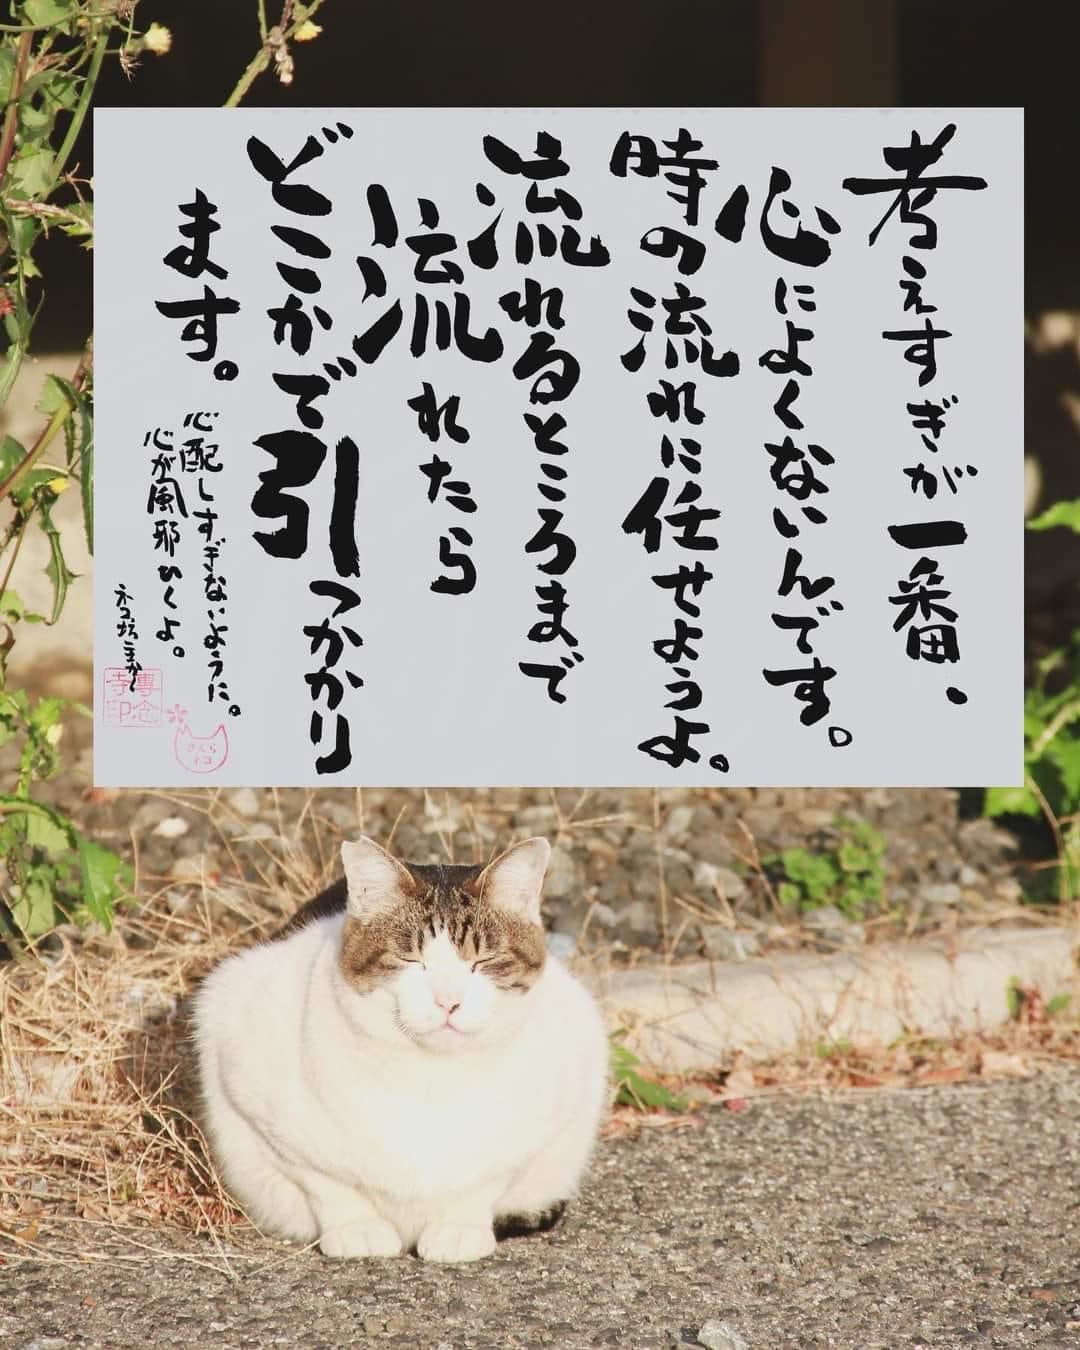 考えすぎが一番、
心によくないんです。
時の流れに任せようよ。
流れるところまで
流れたら
どこかで引っかかり
ます。
心配しすぎないように。
心が風邪ひくよ。
專念
寺印
さくら
ネコ